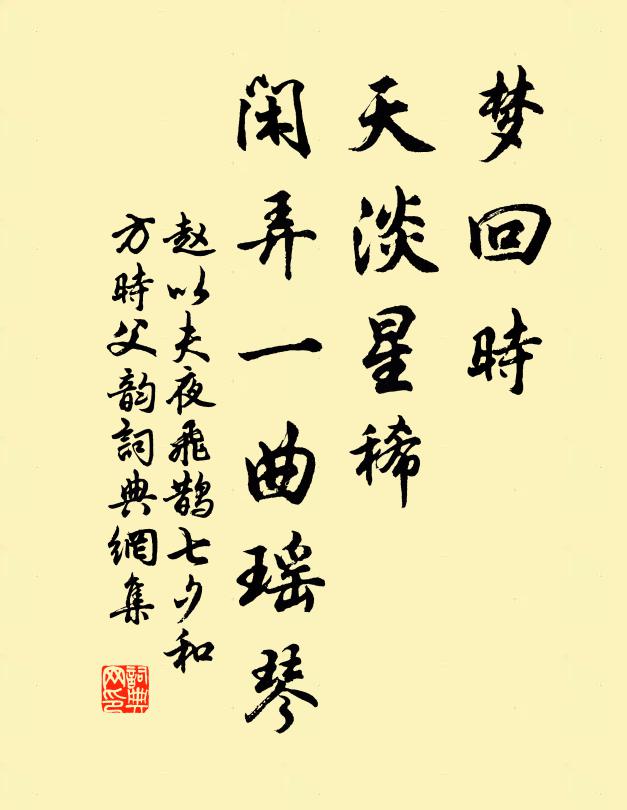 梦回時
天淡星稀
闲弄一曲瑶琴
赵以夫夜飛鹊七夕和
方時父韵詞典網集
詞典
网印